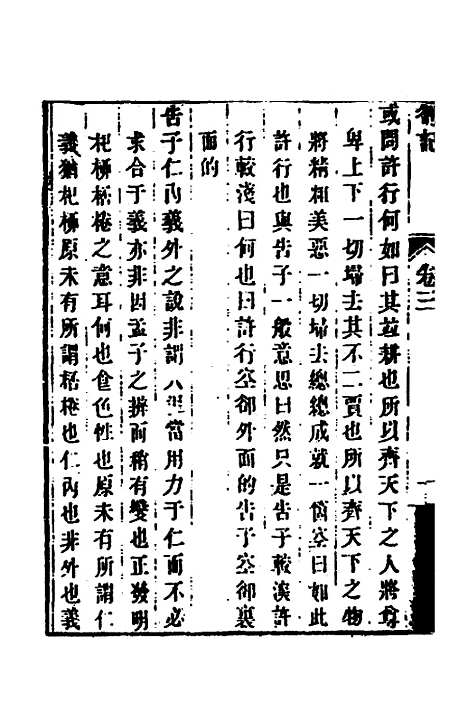 劄記
卷三
一
或問許行何如曰其並耕也所以齊天下之人將尊
卑上下一切埽去其不二賈也所以齊天下之物
將精粗美惡一切埽去總總成就一箇空曰如此
許行也與告子一般意思曰然只是告子較深許
行較淺曰何也曰許行空卻外面的告子空卻裏
面的
告子仁內義外之說非謂人但當用力于仁而不必
求合于義亦非因孟子之辨而稍有變也正發明
杞柳桮棬之意耳何也食色性也原未有所謂仁
義猶杞柳原未有所謂桮棬也仁內也非外也義